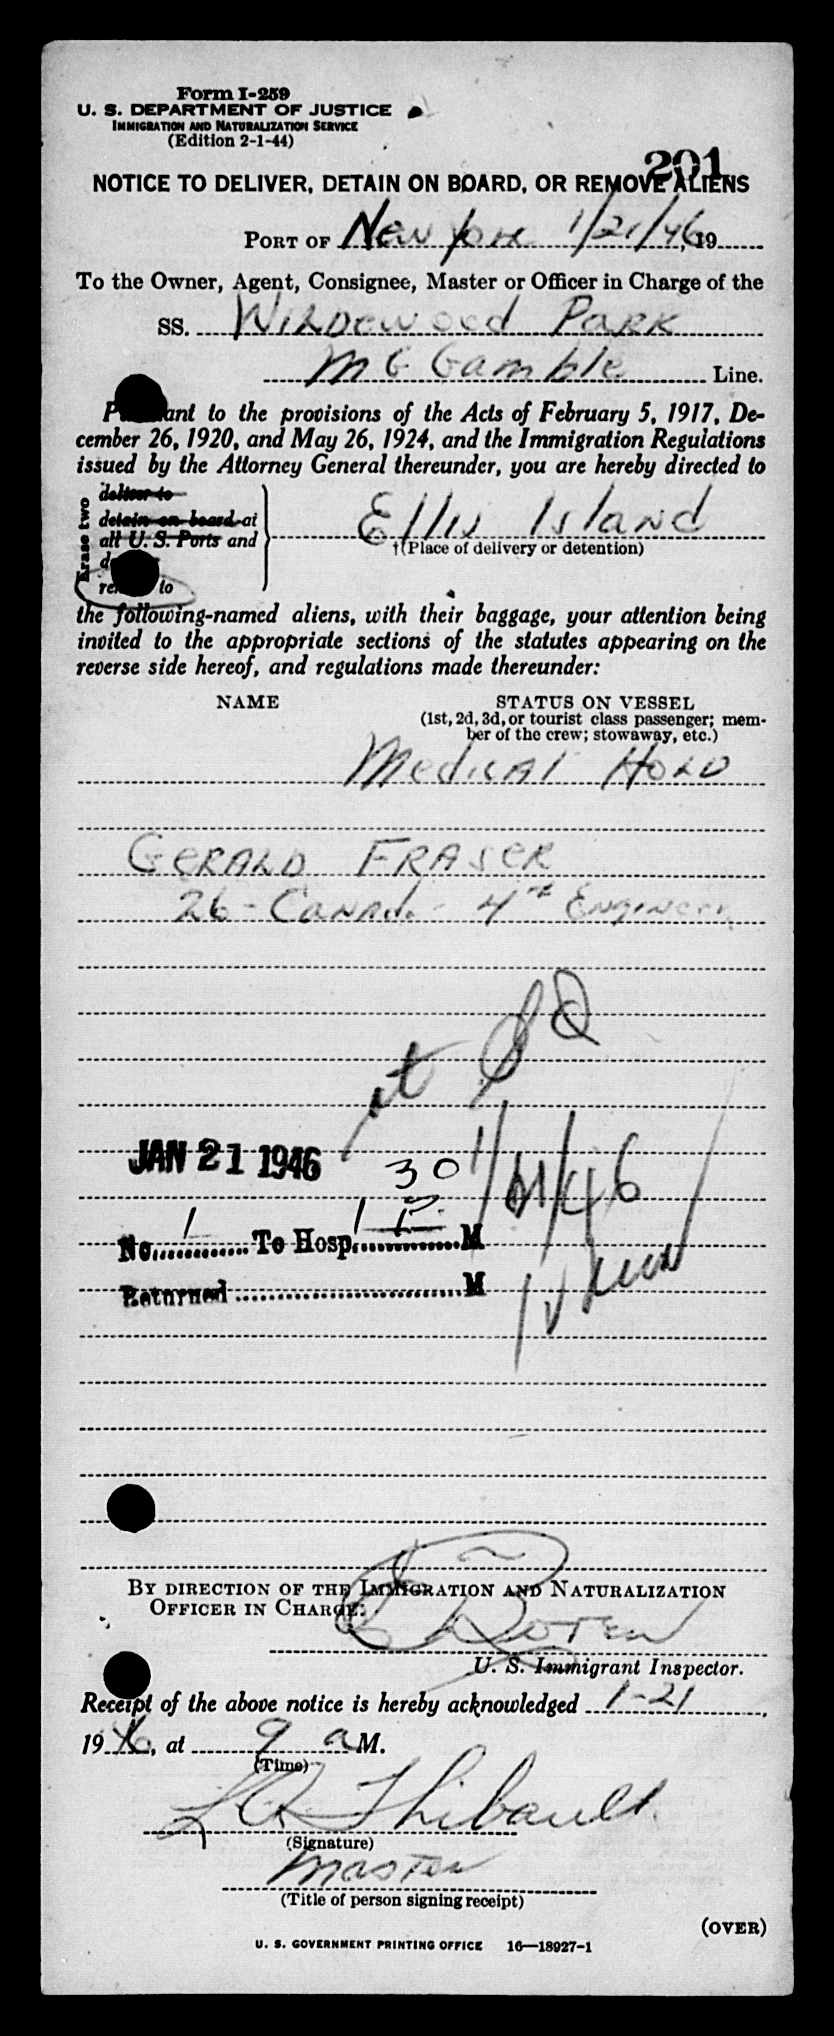 Form I-259
U. S. DEPARTMENT OF JUSTICE
IMMIGRATION AND NATURALIZATION SERVICE
(Edition 2-1-44)
201
NOTICE TO DELIVER, DETAIN ON BOARD, OR REMOVE ALIENS
PORT OF New York 1/21/46, 19
To the Owner, Agent, Consignee, Master or Officer in Charge of the
SS. Wildewood Park
Mc Gamble Line.
Pursuant to the provisions of the Acts of February 5, 1917, De-
cember 26, 1920, and May 26, 1924, and the Immigration Regulations
issued by the Attorney General thereunder, you are hereby directed to
Erase two
deliver to
detain on board at
all U. S. Ports and
to
Ellis Island
†(Place of delivery or detention)
the following-named aliens, with their baggage, your attention being
invited to the appropriate sections of the statutes appearing on the
reverse side hereof, and regulations made thereunder:
NAME STATUS ON VESSEL
(1st, 2d, 3d, or tourist class passenger; mem-
ber of the crew; stowaway, etc.)
Medical Hold
Gerald Fraser
26 - Canad. - 4th Engineer
JAN 21 1946
30
1/21/46
No. 1 To Hosp. 1 P M
Returned M
BY DIRECTION OF THE IMMIGRATION AND NATURALIZATION
OFFICER IN CHARGE:
U. S. Immigrant Inspector.
Receipt of the above notice is hereby acknowledged 1-21,
1946, at 9 a M.
(Time)
L A Thibault
(Signature)
Master
(Title of person signing receipt)
(OVER)
U. S. GOVERNMENT PRINTING OFFICE 16—18927-1